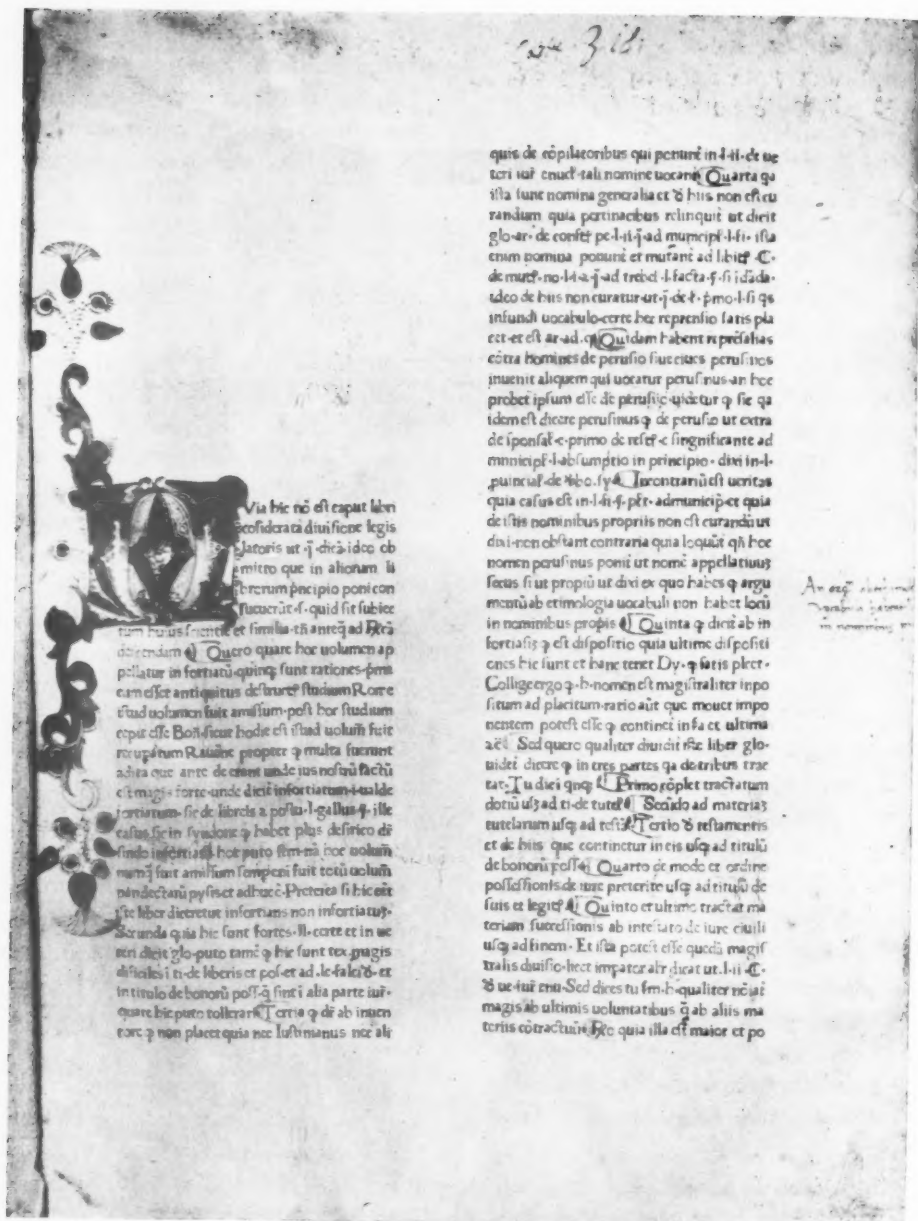 Via hic nō est caput libri
cōsiderata diuisione legis
latoris ut ·j̄· dicā·ideo ob
mitto que in aliorum li
brorum p̄ncipio poni con
sueuerūt·s· quid sit subiec
tum huius scientie et similia·tn̄ anteq̄ ad
Quero quare hoc uolumen ap
pellatur infortiatū·quinq; sunt rationes·p̄ma
cum esset antiquitus destruct̄ studium Rome
istud uolumen fuit amissum·post hoc studium
cepit esse Bon̄·sicut hodie est istud uolum̄ fuit
recupatum Rauān̄e propter q multa fuerunt
adita que ante deerant unde ius nostrū factū
ē magis forte·unde dicit infortiatum·i·ualde
fortiatum· sic de liberis a postu·l·gallus·¶· ille
casus·sic in syndone q habet plus de sirico
infortiat hoc puto nā hoc uolum̄
nunq̄ fuit amissum semper fuit totū uolum̄
pandectarū pysis et adhuc ē·Preterea si hic eēt
iste liber diceretur infortians non infortiatus·
Secunda quia hic sunt fortes·ll·certe et in ue
teri dicit glo·puto tamē q hic sunt tex·magis
dificiles i ti·de liberis et pos·et ad·le·falci·et
in titulo de bonorū poss·q̄ sint i alia parte iur̄·
quare hic puto tollerari Tertia q dr̄ ab inuen
tore q non placet quia nec Iustinianus nec ali
quis de cōpilatoribus qui ponunt̄ in·l·ii·de ue
teri iur̄ enucl̄·tali nomine uocant̄ Quarta qa
ista sunt nomina generalia et de hiis non est cu
randum quia pertinacibus relinquit̄ ut dicit
glo·ar· de constit̄ pe·l·ii·j̄·ad municip̄·l·fi· ista
enim nomina ponunt̄ et mutant̄ ad libit̄·C·
de mut̄·no·l·i·a·j̄·ad trebel·l·facta·¶·si
ideo de hiis non curatur·ut·j̄·de·l·p̄mo·l·si qs
infundi uocabulo·certe hec reprensio satis pla
cet·et est ar·ad·q Quidam habent represalias
cōtra homines de perusio siue ciues perusinos
inuenit aliquem qui uocatur perusinus·an hoc
probet ipsum esse de perusio·uidetur q sic qa
idem est dicere perusinus q de perusio ut extra
de sponsal·c·primo de rest̄·c singnificante ad
mnnicip̄·l·absumptio in principio· dixi in·l·
puincial̄·de ꝟbo·sy Incontrariū est ueritas
quia casus est in·l·fi·¶· pēr·admunicip̄·et quia
de istis nominibus propriis non est curandū ut
dixi·non obstant contraria quia loquūt̄ qn̄ hoc
nomen perusinus ponit̄ ut nomē appellatiuuȝ
secus si ut propiū ut dixi ex quo habes q argu
mentū ab etimologia uocabuli non habet locū
in nominibus propiis Quinta q dicit̄ ab in
fortiasis q est dispositio quia ultime dispositi
ones hic sunt et hanc tenet Dy·q satis plcet·
Collige ergo q·h·nomen est magistraliter inpo
situm ad placitum·ratio aūt que mouet impo
nentem potest esse q continet infa et ultima
Sed quero qualiter diuidit̄ iste liber glo·
uidet̄ dicere q in tres partes qa de tribus trac
tat·Tu dic i qnq; Primo cōplet tractatum
dotiū usq; ad ti·de tutel Secūdo ad materiaȝ
tutelarum usq; ad test̄ Tertio de testamentis
et de hiis que continetur in eis usq; ad titulū
de bonorū poss Quarto de modo et ordine
possessionis de iure preterite usq; ad titulū de
suis et legiti Quinto et ultimo tractat ma
teriam successionis ab intestato de iure ciuili
usq; ad finem· Et ista potest esse quedā magis
tralis diuisio·licet impator alr̄ dicat ut·l·ii·C·
de ue·iur̄ enu·Sed dices tu qualiter
magis ab ultimis uoluntatibus q̄ ab aliis ma
teriis cōtractuum quia illa est maior et po